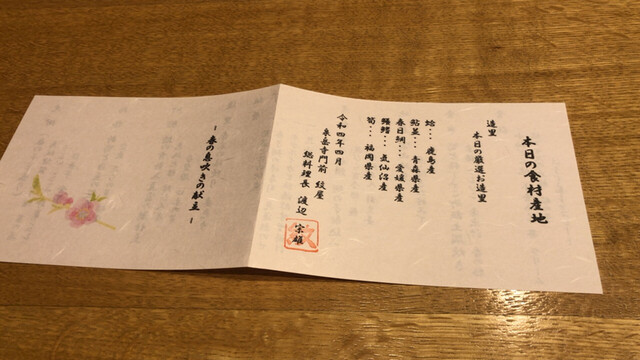 本日の食材産地
造里
本日の厳選お造里
蛤・・・鹿島産
鮎並・・・青森県産
春日鯛・・・愛媛県産
鱶鰭・・・気仙沼産
筍・・・福岡県産
令和四年四月
泉岳寺門前 紋屋
総料理長 渡辺 宗雄
- 春の息吹きの献立 -